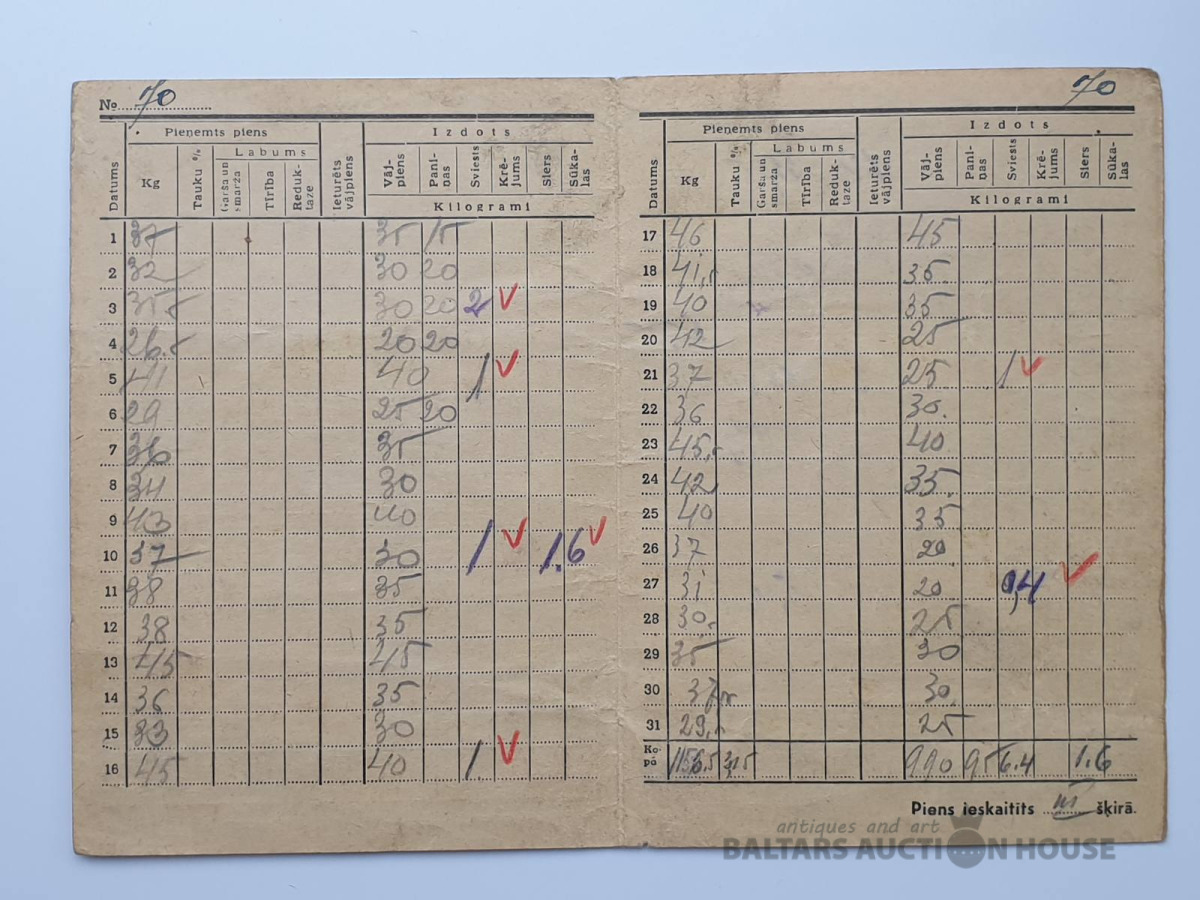 No 70
Pieņemts piens Izdots
Datums Kg Tauku % Labums Ieturēts vājpiens Vāj-piens Pani-ņas Sviests Krē-jums Siers Sūka-las
Garša un smarža Tīrība Reduk-taze Kilogrami
1 37 35 15
2 32 30 20
3 35.5 30 20 2 V
4 26.5 20 20
5 41 40 1 V
6 29 25 20
7 36 35
8 34 30
9 43 40
10 37 30 1 V 1.6 V
11 38 35
12 38 35
13 45 45
14 36 35
15 33 30
16 45 40 1. V
70
Pieņemts piens Izdots
Datums Kg Tauku % Labums Ieturēts vājpiens Vāj-piens Pani-ņas Sviests Krē-jums Siers Sūka-las
Garša un smarža Tīrība Reduk-taze Kilogrami
17 46 45
18 41,5 35
19 40 35
20 42 25
21 37 25 1 V
22 36 30.
23 45,5 40
24 42 35.
25 40 35
26 37 20
27 31 20 0,4 V
28 30, 25
29 35 30
30 37 30
31 29,5 25
Ko-pō 1156.5 990 95 6.4 1.6
Piens ieskaitīts III šķirā.
antiques and art
BALTARS AUCTION HOUSE